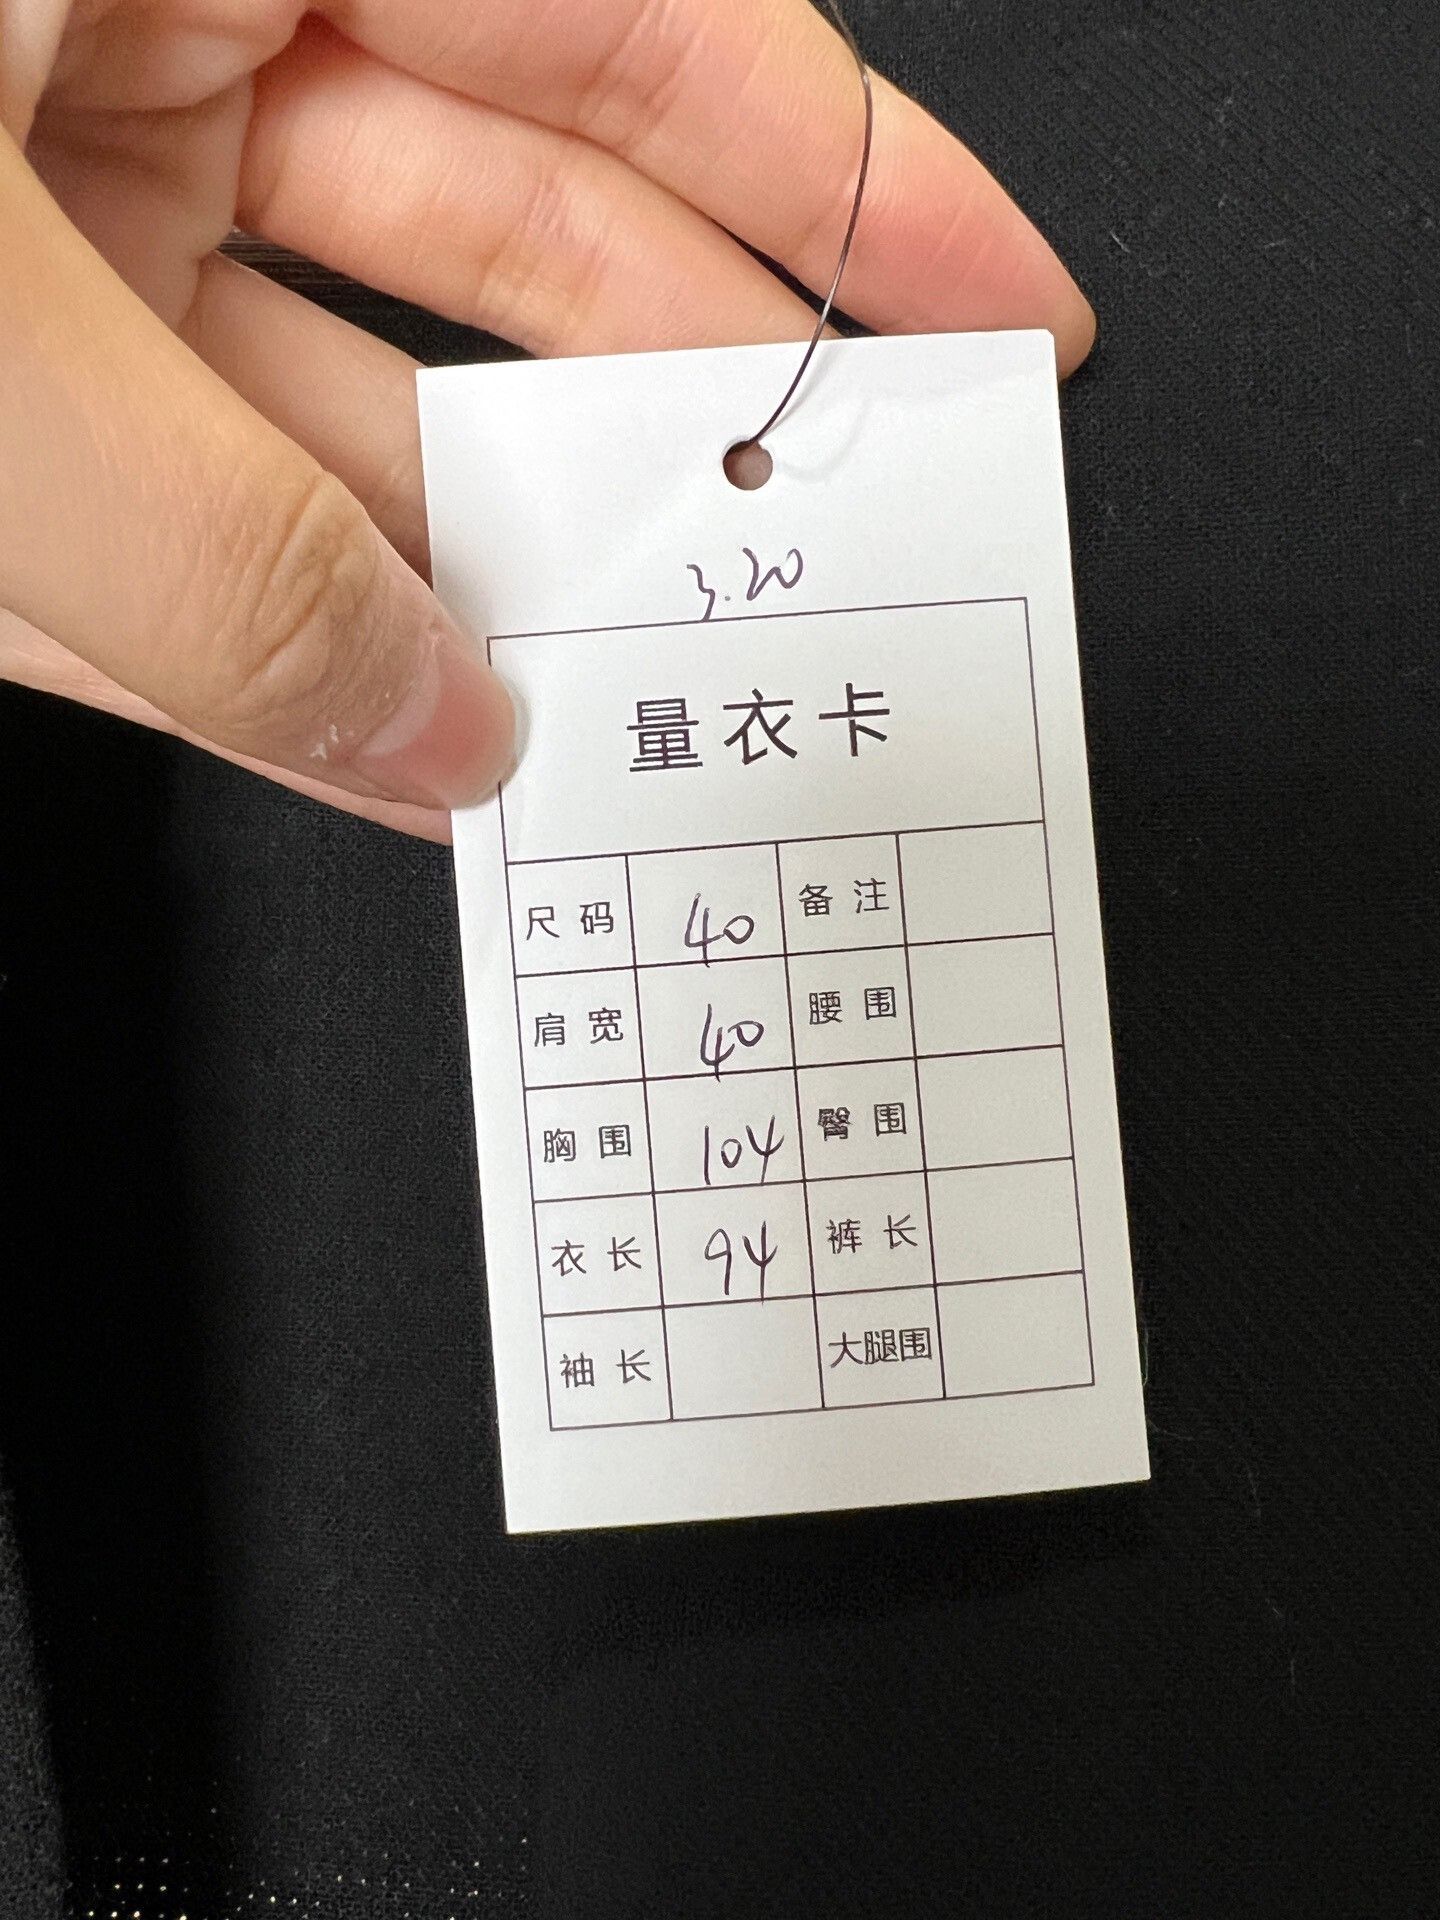 3.20
量衣卡
尺码 40 备注
肩宽 40 腰围
胸围 104 臀围
衣长 94 裤长
袖长 大腿围